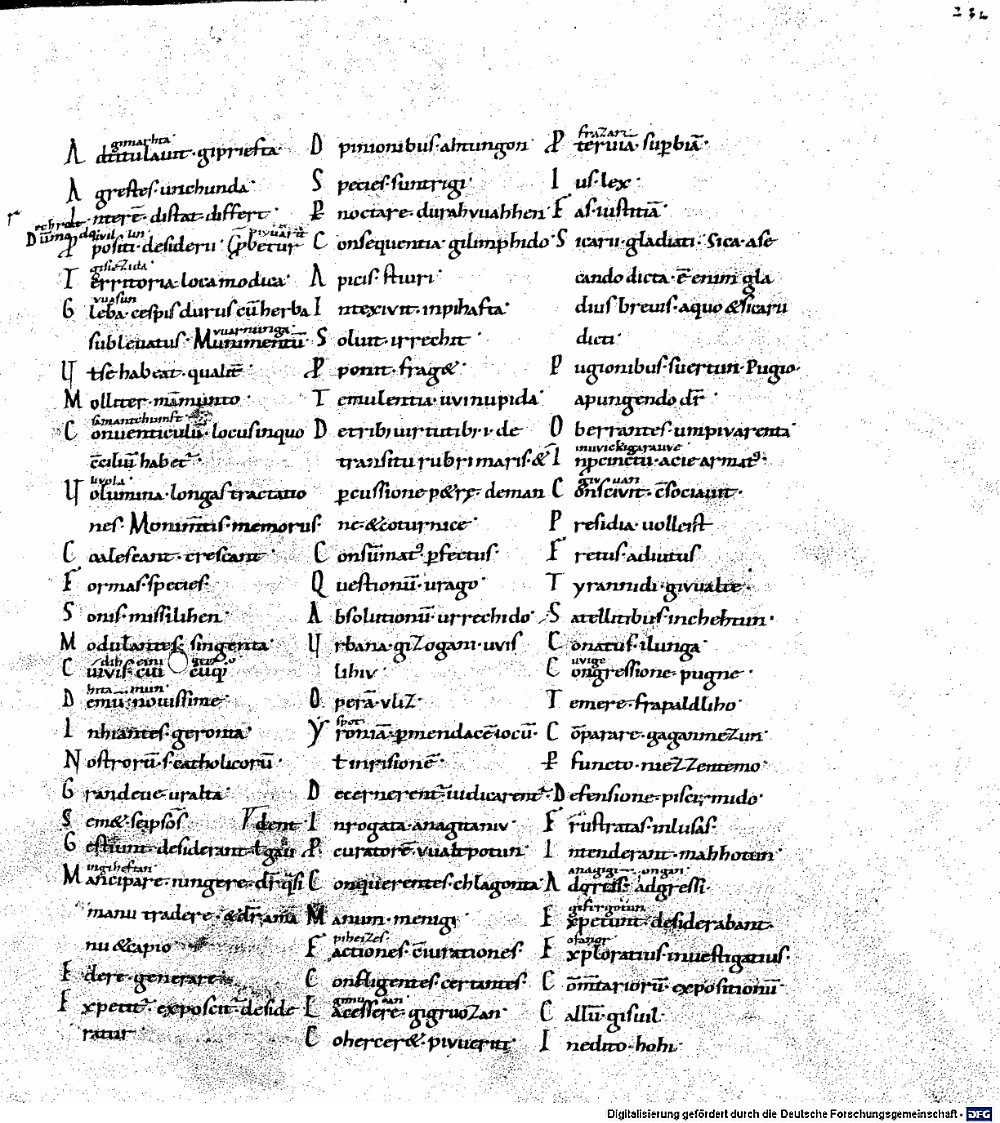 232
gimachta
Adtitulauit· gipriefta·
Agrestes· unchunda·
Interē· distat· differt·
Ppositi· desiderii
gisiezida
Territoria· loca modica·
vuasun
Gleba· cespis durus cū herba
vuarnunga
subleuatus· Munimentū·
Ut se habeat· qualit̄·
Molliter· mammunto·
samantchumft
Conuenticulū· locus inquo
c̄ciliū habet᷑·
uvola
Uolumina· longas tractatio
nes· Monim̄tis· memorus·
Coalescant· crescant·
Formas· species·
Sonis· missilihen·
Modulantes· singenta·
Cuivis· cui
Demū· nouissime·
Inhiantes· geronta·
Nostrorū· s· catholicorū·
Grandeue· uralta·
Semet· seipsos·
Gestiunt· desiderant·
Mancipare· ringere·
manu tradere·
nu & capio
Edere· generare
Expetit᷑· exposcit᷑· deside
ratur
Opinionibus· ahtungon·
Species· suntrigi·
Pnoctare· durahvuahhen·
Consequentia· gilimphido·
Apicis· stivri·
Intexivit· inpihafta·
Soluit· irrechit·
Pponit· frag&·
Temulentia· uvinupida·
De tribi uirtutibi· i· de
transitu rubri maris· &
pcussione p&rę· deman
ne· & coturnice·
Consūmat᷒· pfectus·
Questionū· urago·
Absolutionū· urrechido·
Urbana· gizogani· uvis
lihiv·
Operā· vliz·
spot
Yroniā· pmendacē iocū·
t inrisionē·
Decernerent᷑· iudicarent᷑·
Inrogata· anagitaniv·
Pcuratorē· vualtpotun·
Conquerentes· chlagonta·
Manum· menigi·
piheizes
Factiones· c̄iurationes·
Confligentes· certantes·
Lacessere· gigruozan·
Cohercer&· pivuerit·
frazari
Pteruia· supbiā·
Ius· lex·
Fas· iustitiā·
Sicarii· gladiati· Sica· ase
cando dicta· ē enim gla
dius breuis· a quo & sicarii
dicti·
Pugionibus· suertun· Pugio·
apungendo dr̄·
Oberrantes· umpivarenta·
Inpcinctu· acie armat᷒·
Consciuit· c̄sociauit·
Presidia· uolleist
Fretus· adiutus·
Tyrannidi· givualte·
Satellitibus· inchehtun·
Conatus· ilunga·
uvige
Congressione· pugne·
Temere· frapaldliho·
Cōparare· gaganmezun·
Pfuncto· niezzentemo·
Defensione· piscirmido·
Frustratas· inlusas·
Intenderant· mahhotun·
Adgressi· adgressi·
Expetunt· desiderabant·
Exploratius· inuestigatius·
Com̄tariorū· expositionū·
Callū· gisuil·
Inedito· hohi·
Digitalisierung gefördert durch die Deutsche Forschungsgemeinschaft - DFG